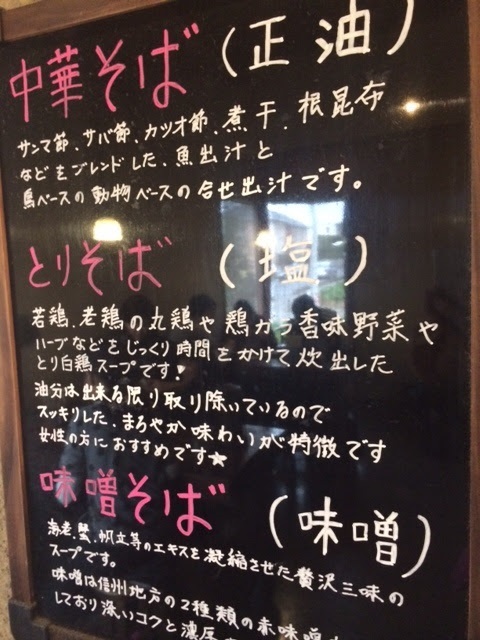 中華そば（正油）
サンマ節、サバ節、カツオ節、煮干、根昆布
などをブレンドした、魚出汁と
鳥ベースの動物ベースの合せ出汁です。
とりそば（塩）
若鶏、老鶏の丸鶏や鶏がら香味野菜や
ハーブなどをじっくり時間をかけて炊出した
とり白鶏スープです！
油分は出来る限り取り除いているので
スッキリした、まろやか味わいが特徴です
女性の方におすすめです★
味噌そば（味噌）
海老、蟹、帆立等のエキスを凝縮させた贅沢三味の
スープです。
味噌は信州地方の2種類の赤味噌
しており深いコクと濃厚